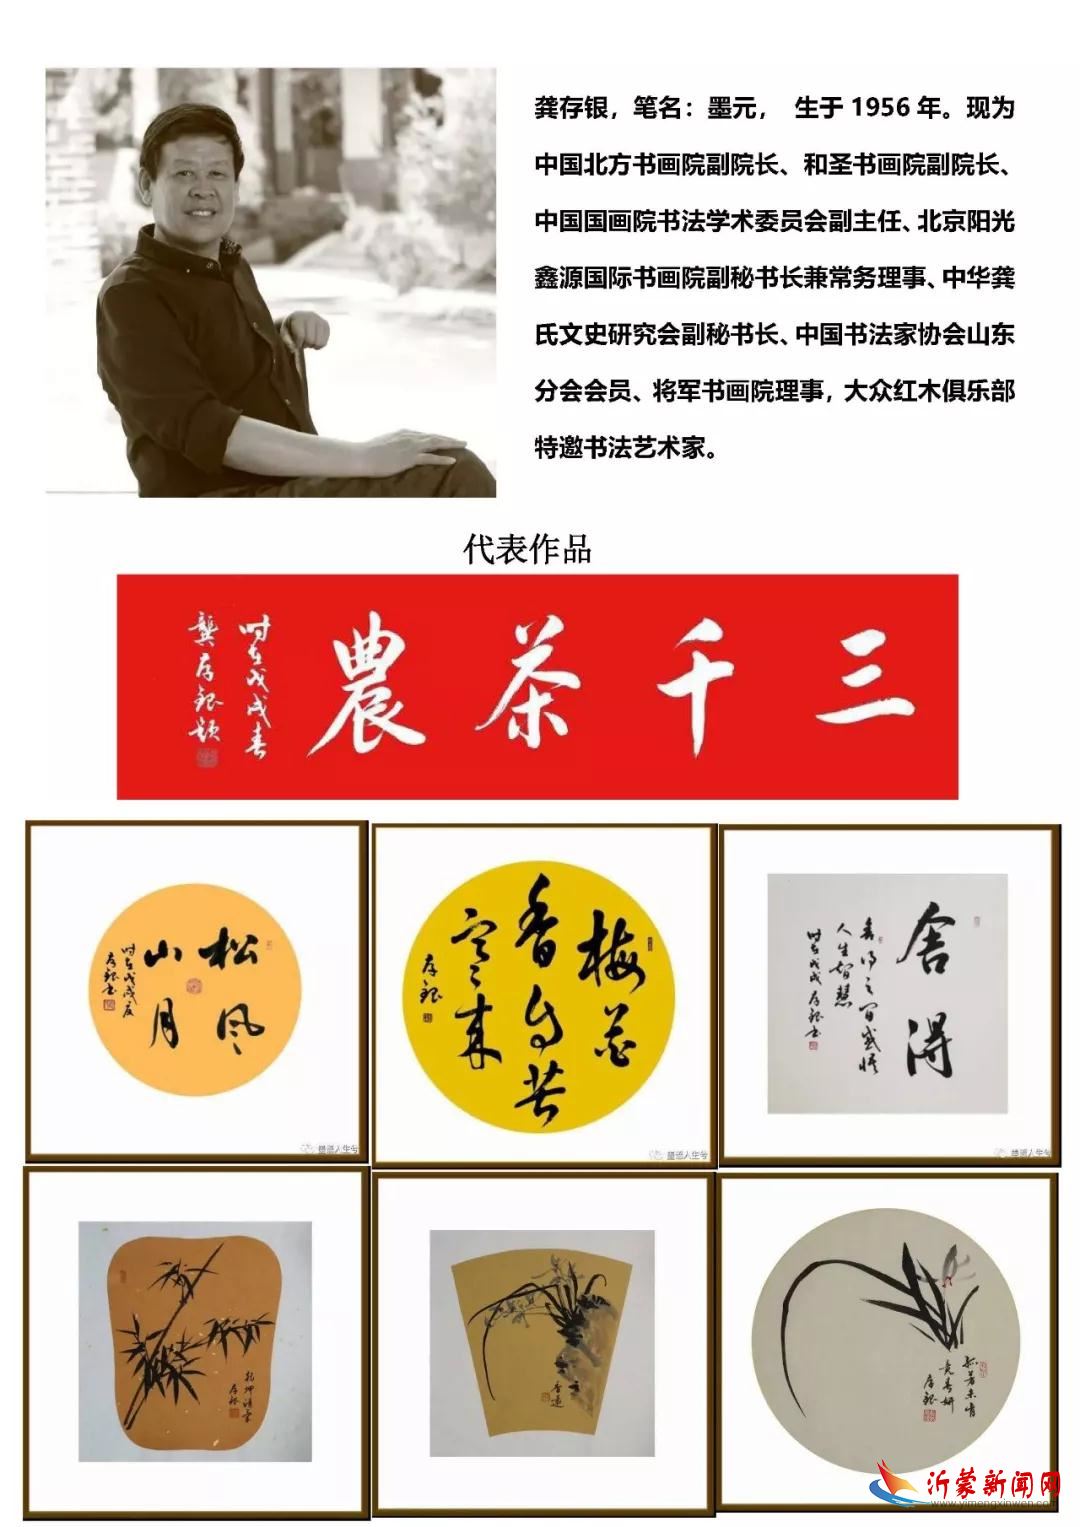 龚存银，笔名：墨元， 生于 1956 年。现为
中国北方书画院副院长、和圣书画院副院长、
中国国画院书法学术委员会副主任、北京阳光
鑫源国际书画院副秘书长兼常务理事、中华龚
氏文史研究会副秘书长、中国书法家协会山东
分会会员、将军书画院理事，大众红木俱乐部
特邀书法艺术家。
代表作品
三千茶農
时在戊戌春
龔存銀題
松风
山月
时在戊戌夏
存銀书
梅花
香自苦
寒来
存銀
舍得
舍得之间感悟
人生智慧
时在戊戌存銀书
墨语人生兮
墨语人生兮
墨语人生兮
乾坤清氣
存銀
香遠
孤芳未肯
竞春妍
存銀
沂蒙新闻网
www.yimengxinwen.com